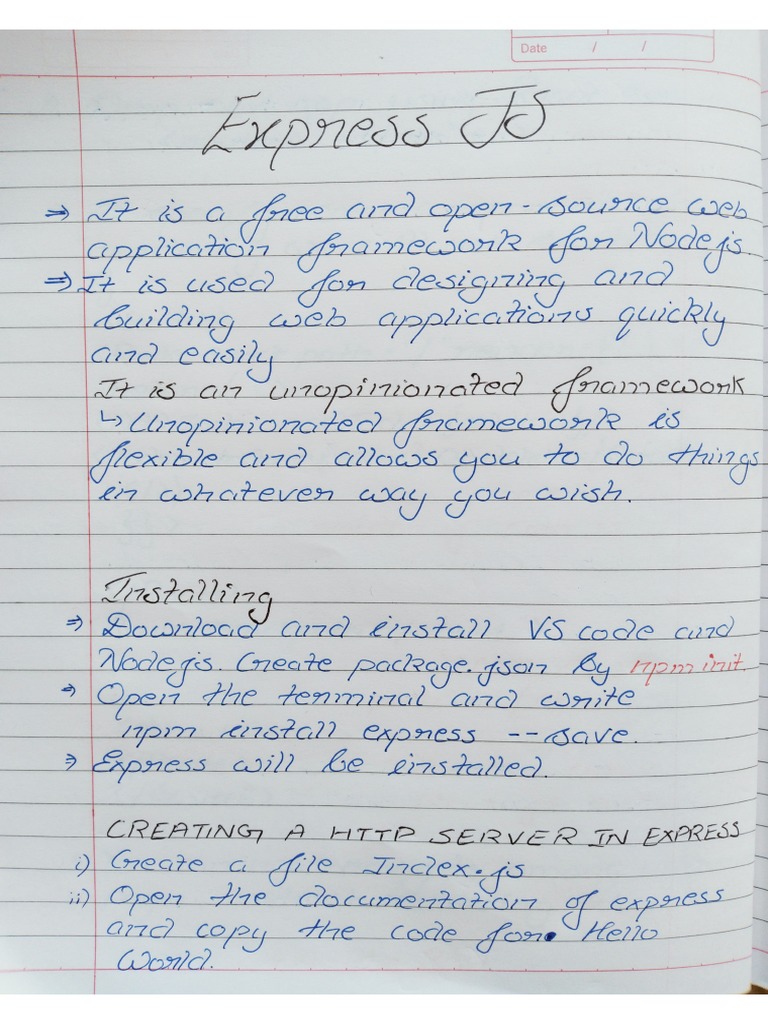 Date / /
Express JS
⇒ It is a free and open-source web
application framework for Nodejs.
⇒ It is used for designing and
building web applications quickly
and easily
It is an unopinionated framework
↳ Unopinionated framework is
flexible and allows you to do things
in whatever way you wish.
Installing
⇒ Download and install VS code and
Nodejs. Create package.json by npm init.
⇒ Open the terminal and write
npm install express --save.
⇒ Express will be installed.
CREATING A HTTP SERVER IN EXPRESS
i) Create a file Index.js
ii) Open the documentation of express
and copy the code for Hello
World.